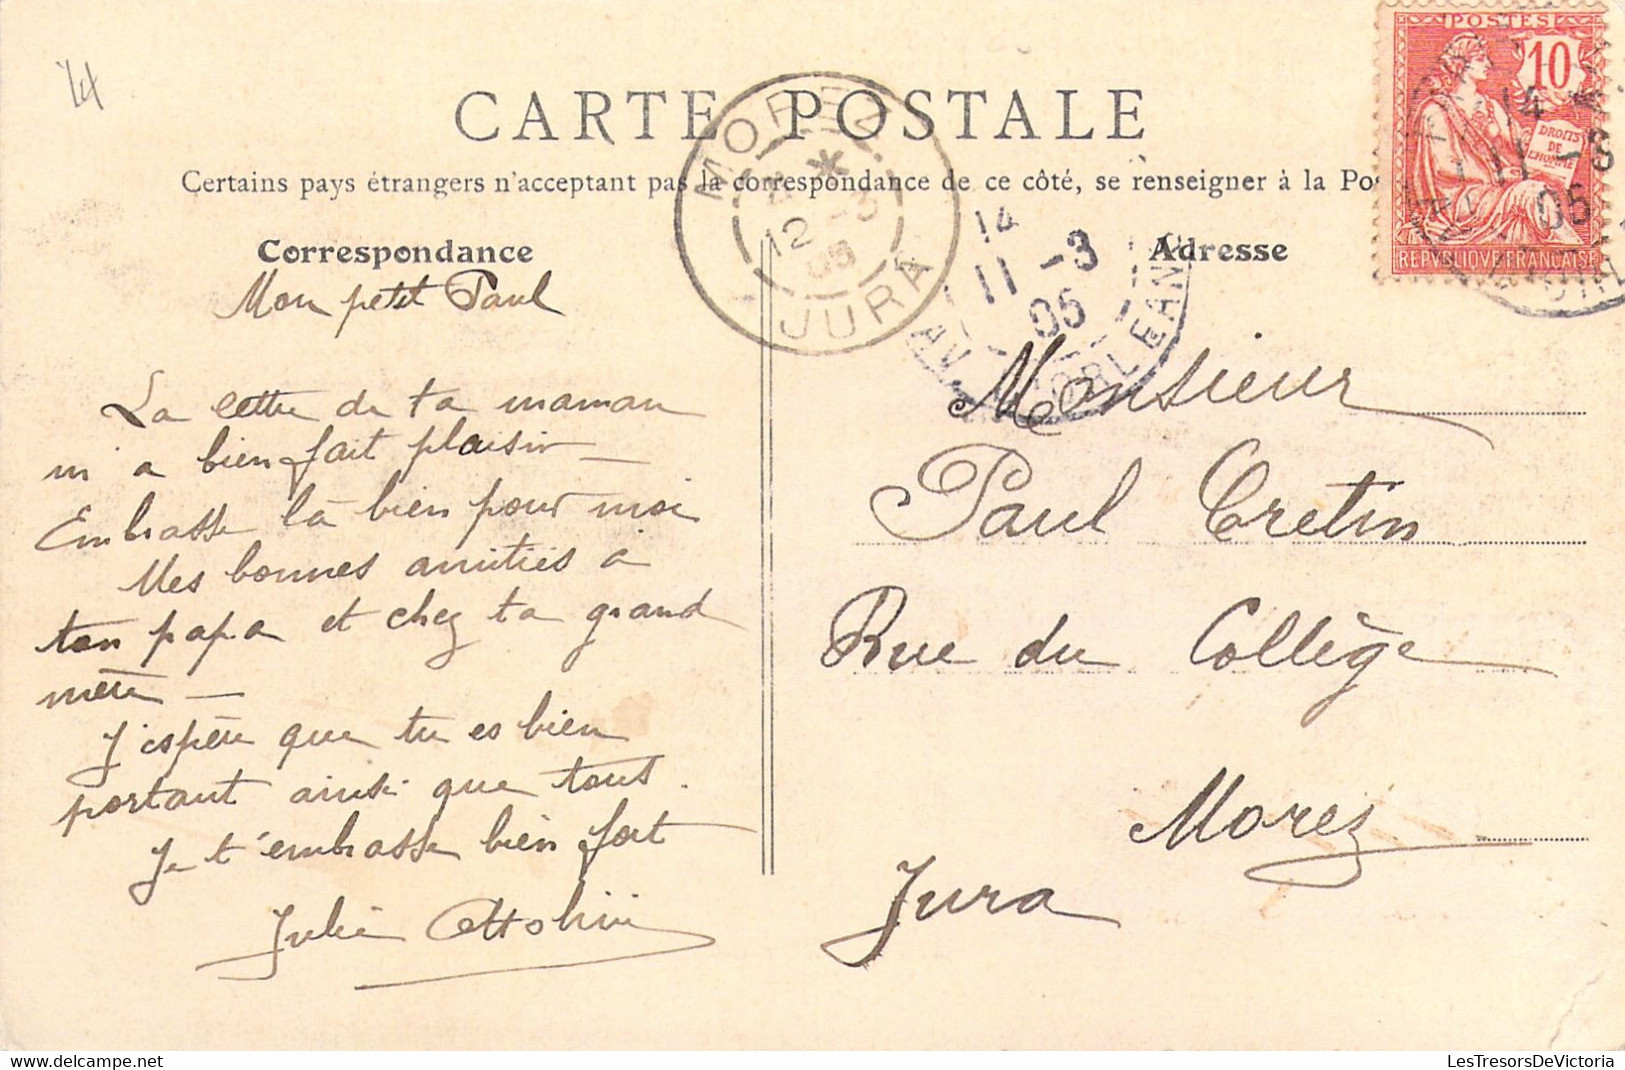 CARTE POSTALE
Certains pays étrangers n'acceptent pas la correspondance de ce côté, se renseigner à la Pos
Correspondance
Mon petit Paul
La lettre de ta maman
m'a bien fait plaisir _
Embrasse la bien pour moi
Mes bonnes amitiés à
ton papa et chez ta grand
mère _
J'espère que tu es bien
portant ainsi que tous.
Je t'embrasse bien fort
Julie
MOREZ
12
05
JURA
14
11 -3
05
ORLEANS
Adresse
Monsieur
Paul Cretin
Rue du Collège
Morez
Jura
POSTES
10
DROITS
DE
L'HOMME
REPVBLIQVE FRANCAISE
14
11 -3
05
LesTresorsDeVictoria